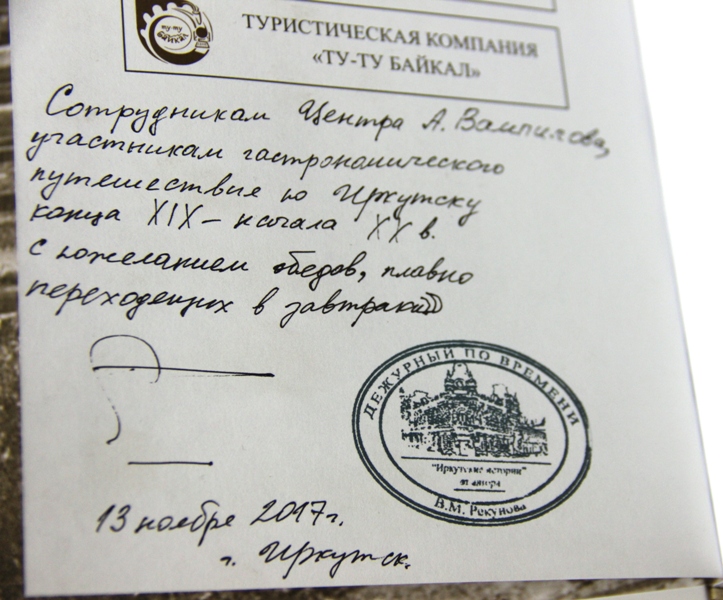 ТУ-ТУ
БАЙКАЛ
ТУРИСТИЧЕСКАЯ КОМПАНИЯ
«ТУ-ТУ БАЙКАЛ»
Сотрудникам Центра А. Вампилова,
участникам гастрономического
путешествие по Иркутску
конца XIX – начала XX в.
с пожеланием обедов, плавно
переходящих в завтраки)))
ДЕЖУРНЫЙ ПО ВРЕМЕНИ
"Иркутские истории"
от автора
В.М. Рекунова
13 ноября 2017 г.
г. Иркутск.